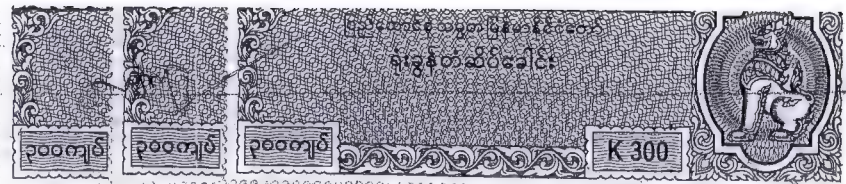 ပြည်ထောင်စုသမ္မတမြန်မာနိုင်ငံတော်
ရုံးခွန်တံဆိပ်ခေါင်း
၃၀၀ကျပ် ၃၀၀ကျပ် ၃၀၀ကျပ် K 300